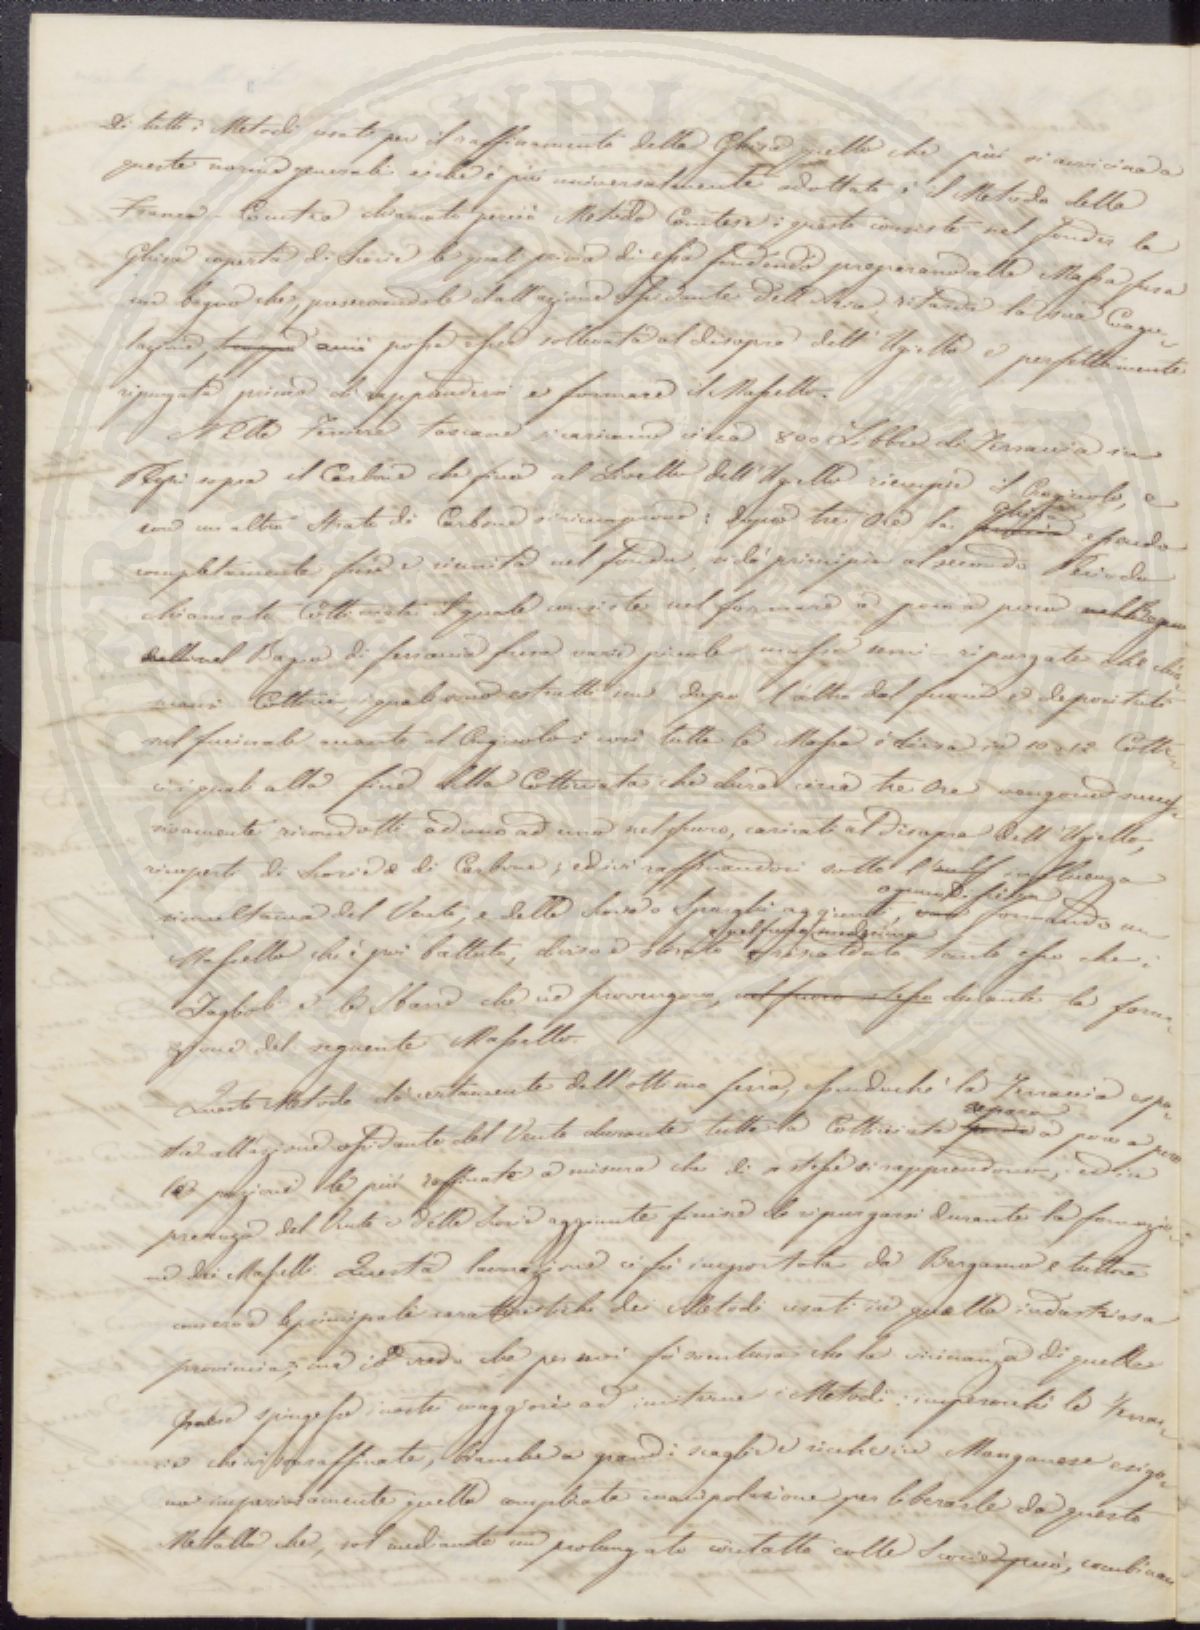 Di tutti i Metodi usati per il raffinamento della Ghisa quello che più si avvicina a
queste norme generali e che è più universalmente adottato è il Metodo della
Franca-Contea chiamato perciò Metodo Contese: questo consiste nel fondere la
Ghisa coperta di Scorie le quali prima di essa fondendo preparano alla Massa fusa
un bagno che, preservandola dall'azione ossidante dell'Aria, ritarda la sua Coagu-
lazione, acciò possa esser sollevata al disopra dell'Ugello e perfettamente
ripurgata prima di rapprendersi e formare il Massello.
Nelle Ferriere Toscane si caricano circa 800 Libbre di Ferraccia in
Pezzi sopra il Carbone che fino al Livello dell'Ugello riempie il Crogiuolo, e
con un altro strato di Carbone si ricuoprono: dopo tre Ore la ghisa essendo
completamente fusa e riunita nel fondo, si dà principio al secondo Periodo
chiamato Cotticciata il quale consiste nel formare a poco a poco
nel Bagno di ferraccia fusa varie piccole masse semi-ripurgate che chia-
mansi Cotticci, i quali sono estratti uno dopo l'altro dal fuoco e depositati
sul fucinale accanto al Crogiuolo: così tutta la Massa è divisa in 10 o 12 Cottic-
ci i quali alla fine della Cotticciata che dura circa tre Ore vengono nuova-
mente ricondotti ad uno ad uno nel fuoco, caricati al Disopra dell'Ugello,
ricoperti di Scorie e di Carbone; ed ivi raffinandosi sotto l'influenza
simultanea del Vento, e delle Scorie o Sparghi aggiunti, formando un
Massello che è poi battuto, diviso e stirato e nel fuoco medesimo riscaldato tanto esso che i
Taglioli e le Barre che ne provengono, nel fuoco stesso durante la forma-
zione del seguente Massello.
Questo Metodo dà certamente dell'ottimo ferro, essendochè la Ferraccia espo-
sta all'azione ossidante del Vento durante tutta la Cotticciata separa a poco a poco
le porzioni le più raffinate a misura che di per se stesse si rapprendono; ed in
presenza del Vento e delle Scorie aggiunte finisce di ripurgarsi durante la formazio-
ne dei Masselli. Questa lavorazione ci fù importata da Bergamo e tuttora
conserva le principali caratteristiche dei Metodi usati in quella industriosa
provincia; ma io credo che per noi fù sventura che la vicinanza di quelle
spingesse i nostri maggiori ad imitarne i Metodi: imperocchè le Ferrac-
cie che ivi son raffinate, bianche a grandi scaglie e ricche in Manganese esigo-
no imperiosamente quella complicata manipolazione per liberarle da questo
Metallo che, sol mediante un prolungato contatto colle Scorie, combinan